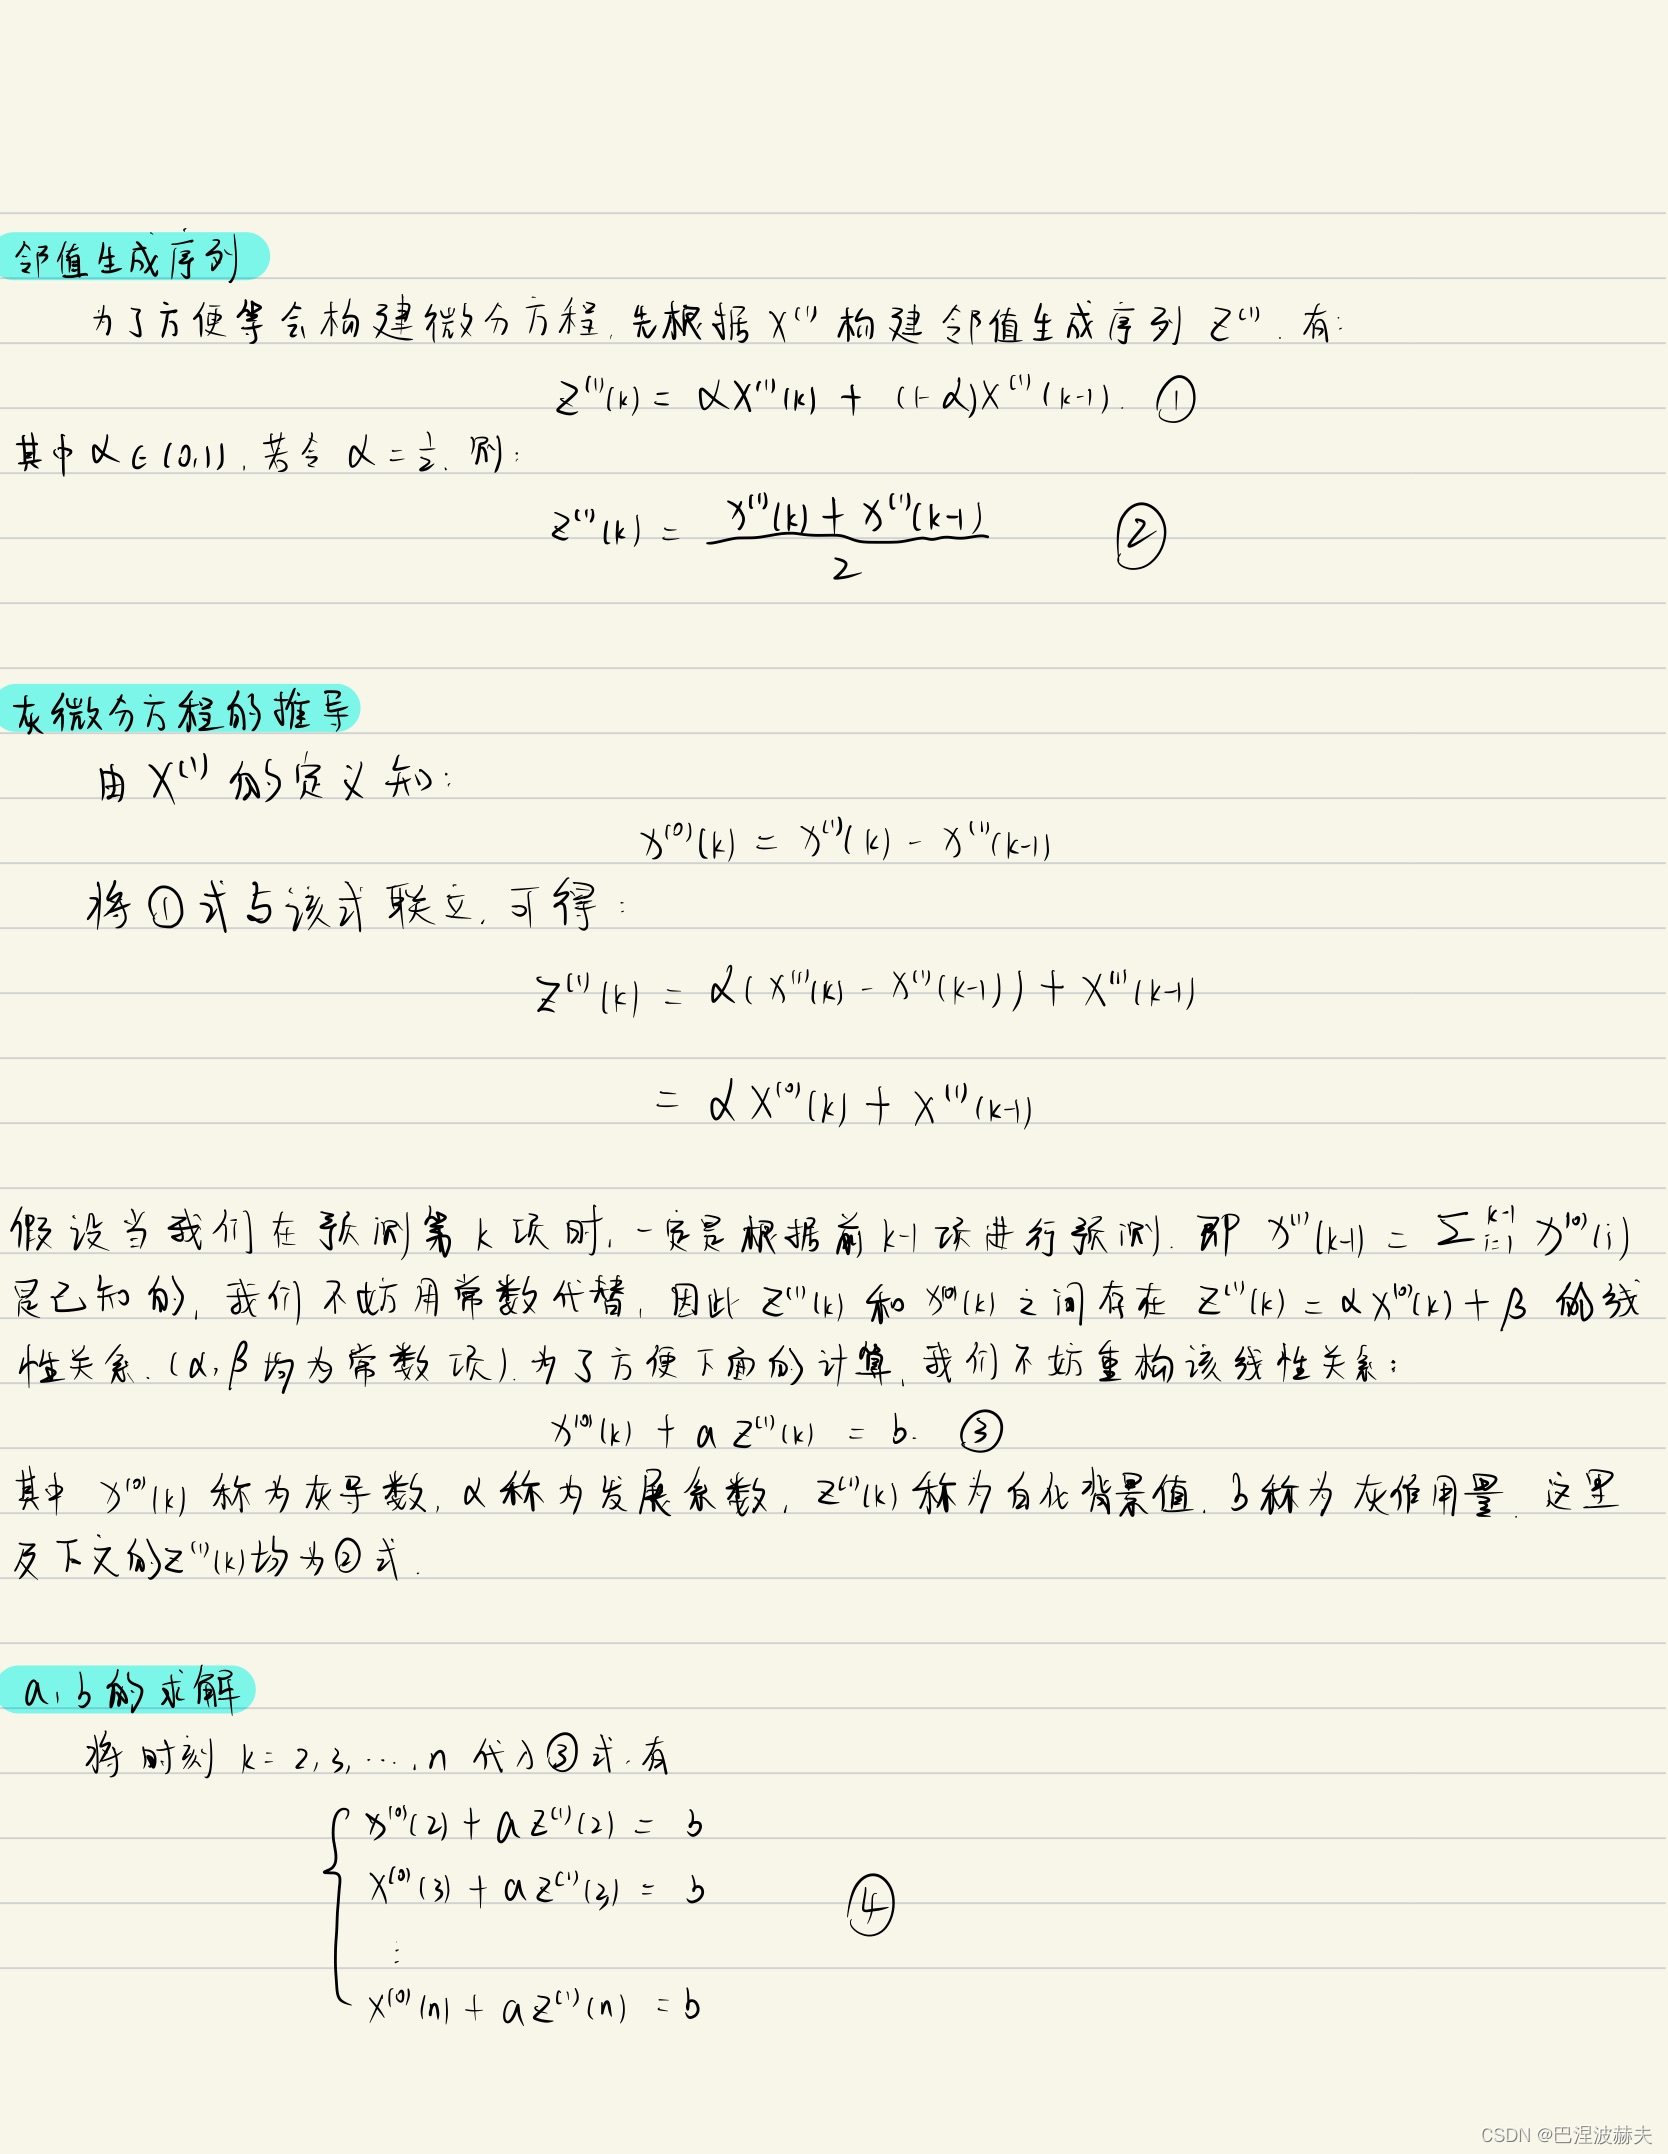 邻值生成序列
为了方便等会构建微分方程,先根据 X⁽¹⁾ 构建邻值生成序列 Z⁽¹⁾. 有:
Z⁽¹⁾(k) = αX⁽¹⁾(k) + (1-α)X⁽¹⁾(k-1). ①
其中 α∈(0,1), 若令 α = 1/2, 则:
Z⁽¹⁾(k) = (x⁽¹⁾(k) + x⁽¹⁾(k-1))/2 ②
灰微分方程的推导
由 X⁽¹⁾ 的定义知:
x⁽⁰⁾(k) = x⁽¹⁾(k) - x⁽¹⁾(k-1)
将①式与该式联立, 可得:
Z⁽¹⁾(k) = α(X⁽¹⁾(k) - X⁽¹⁾(k-1)) + X⁽¹⁾(k-1)
= αX⁽⁰⁾(k) + X⁽¹⁾(k-1)
假设当我们在预测第 k 项时, 一定是根据前 k-1 项进行预测. 即 x⁽¹⁾(k-1) = Σᵢ₌₁ᵏ⁻¹ x⁽⁰⁾(i)
是已知的, 我们不妨用常数代替, 因此 Z⁽¹⁾(k) 和 x⁽⁰⁾(k) 之间存在 Z⁽¹⁾(k) = αx⁽⁰⁾(k) + β 的线
性关系. (α, β 均为常数项). 为了方便下面的计算, 我们不妨重构该线性关系:
x⁽⁰⁾(k) + a Z⁽¹⁾(k) = b. ③
其中 x⁽⁰⁾(k) 称为灰导数, α 称为发展系数, Z⁽¹⁾(k) 称为白化背景值, b 称为灰作用量. 这里
及下文的 Z⁽¹⁾(k) 均为②式.
a, b 的求解
将时刻 k = 2, 3, ⋯, n 代入③式, 有
x⁽⁰⁾(2) + a Z⁽¹⁾(2) = b
X⁽⁰⁾(3) + a Z⁽¹⁾(3) = b ④
⋮
X⁽⁰⁾(n) + a Z⁽¹⁾(n) = b
CSDN @巴涅波赫夫